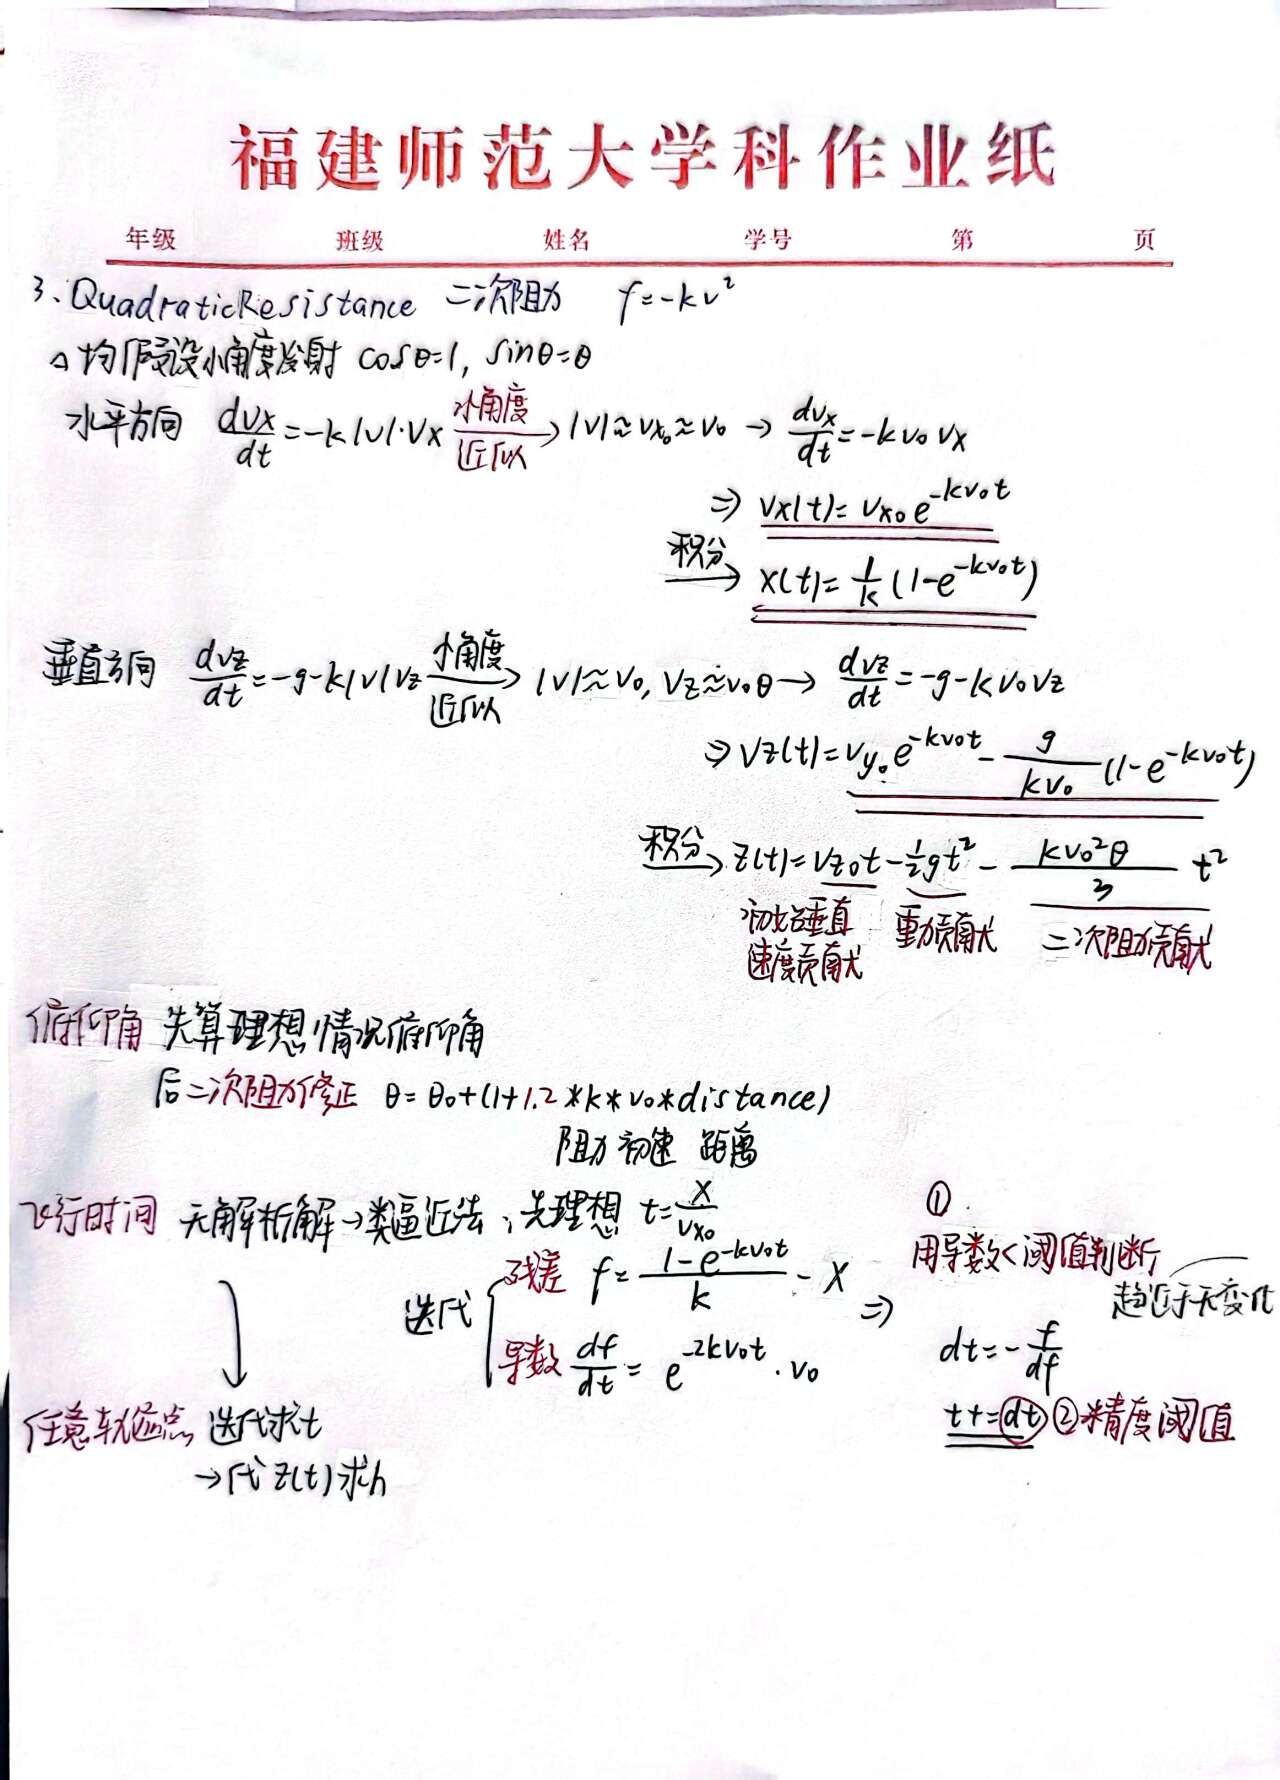 福建师范大学科作业纸
年级 班级 姓名 学号 第 页
3、QuadraticResistance 二次阻力 f=-kv²
△ 均假设小角度发射 cosθ=1, sinθ=θ
水平方向 dvx/dt=-k|v|·vx 小角度近似→ |v|≈vx₀≈v₀ → dvx/dt=-kv₀vx
⇒ vx(t)=vx₀e^(-kv₀t)
积分→ x(t)=1/k(1-e^(-kv₀t))
垂直方向 dvz/dt=-g-k|v|vz 小角度近似→ |v|≈v₀, vz≈v₀θ → dvz/dt=-g-kv₀vz
⇒ vz(t)=vy₀e^(-kv₀t)-g/(kv₀)(1-e^(-kv₀t))
积分→ z(t)=vz₀t-½gt²-(kv₀²θ/3)t²
初始垂直速度贡献 重力贡献 二次阻力贡献
俯仰角 先算理想情况俯仰角
后二次阻力修正 θ=θ₀+(1+1.2*k*v₀*distance)
阻力 初速 距离
飞行时间 无解析解→类逼近法,先理想 t=x/vx₀
迭代 残差 f=(1-e^(-kv₀t))/k-x
导数 df/dt=e^(-2kv₀t)·v₀
⇒ ① 用导数<阈值判断
趋近于无变化
dt=-f/df
t+=dt ②精度阈值
任意轨迹点 迭代求t
→代z(t)求h